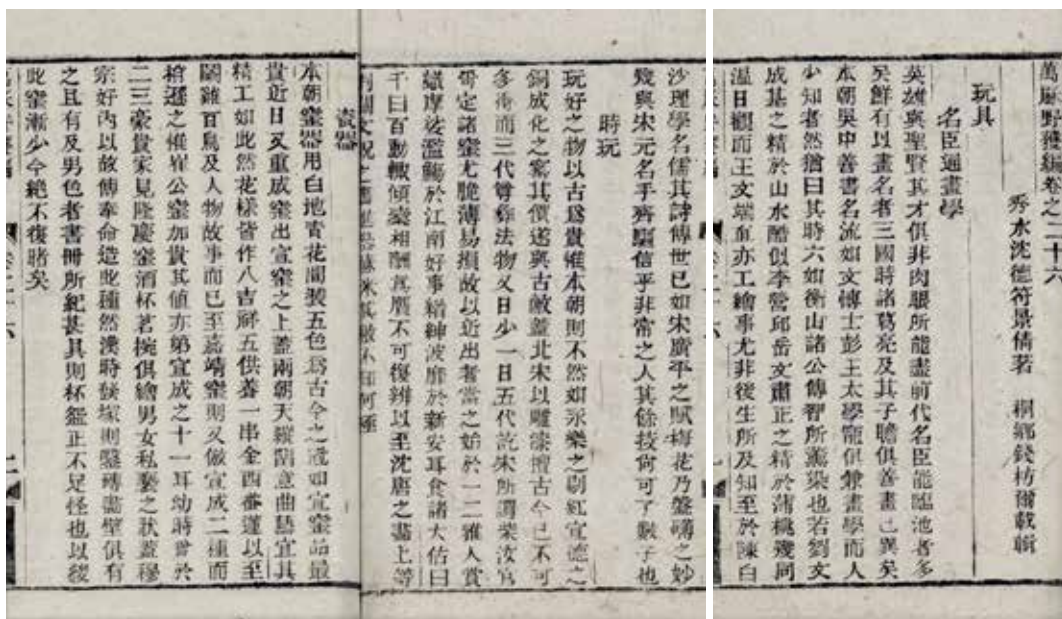 萬曆野獲編卷之二十六
秀水沈德符景倩著　桐鄉錢枋爾載輯
玩具
名臣通畫學
英雄與聖賢其才俱非肉眼所能盡前代名臣能臨池者多
矣鮮有以畫名者三國時諸葛亮及其子瞻俱善畫已異矣
本朝吳中善書名流如文博士彭王太學寵俱兼畫學而人
少知者然猶曰其時六如衡山諸公傳習所薰染也若劉文
成基之精於山水酷似李營邱岳文肅正之精於蒲桃幾同
溫日觀而王文端直亦工繪事尤非後生所及知至於陳白
沙理學名儒其詩傳世已如宋廣平之賦梅花乃盤礴之妙
幾與宋元名手齊驅信乎非常之人其餘技何可了數子也
時玩
玩好之物以古爲貴惟本朝則不然如永樂之剔紅宣德之
銅成化之窯其價遂與古敵蓋北宋以雕漆擅古今已不可
多得而三代尊彝法物又日少一日五代訖宋所謂柴汝官
哥定諸窯尤脆薄易損故以近出者當之始於一二雅人賞
識摩挲濫觴於江南好事縉紳波靡於新安耳食諸大估曰
千曰百動輒傾橐相酬真贋不可復辨以至沈唐之畫上等
荊關文祝之書進參蘇米其敝不知何極
瓷器
本朝窯器用白地青花間裝五色爲古今之冠如宣窯品最
貴近日又重成窯出宣窯之上蓋兩朝天縱留意曲藝宜其
精工如此然花樣皆作八吉祥五供養一串金西番蓮以至
鬬雞百鳥及人物故事而已至嘉靖窯則又倣宣成二種而
稍遜之惟崔公窯加貴其値亦第宣成之十一耳幼時曾於
二三豪貴家見隆慶窯酒杯茗椀俱繪男女私褻之狀蓋穆
宗好內以故傳奉命造此種然漢時發塚則鑿磚畫壁俱有
之且有及男色者書冊所紀甚具則杯盌正不足怪也以後
此窯漸少今絕不復睹矣